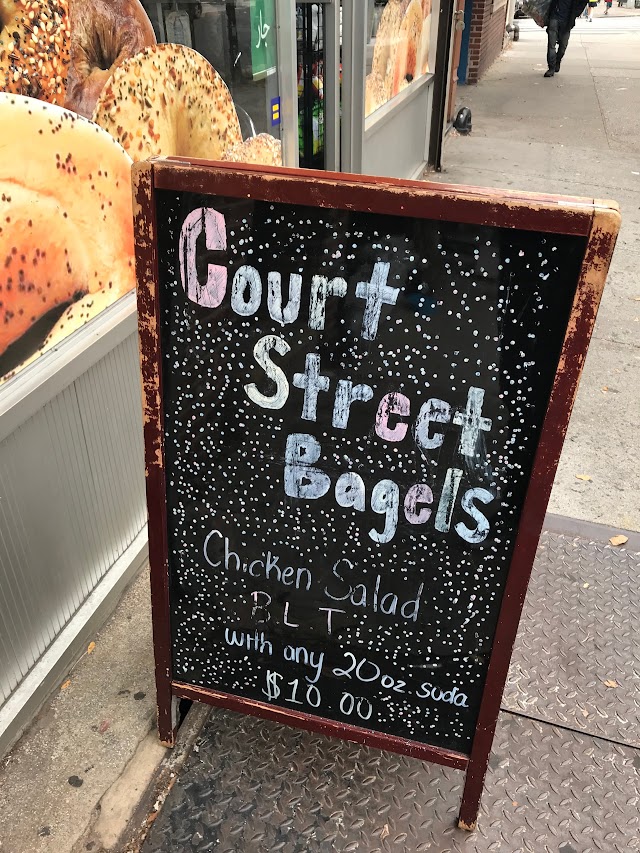 Court
Street
Bagels
Chicken Salad
BLT
with any 20oz. soda
$10.00